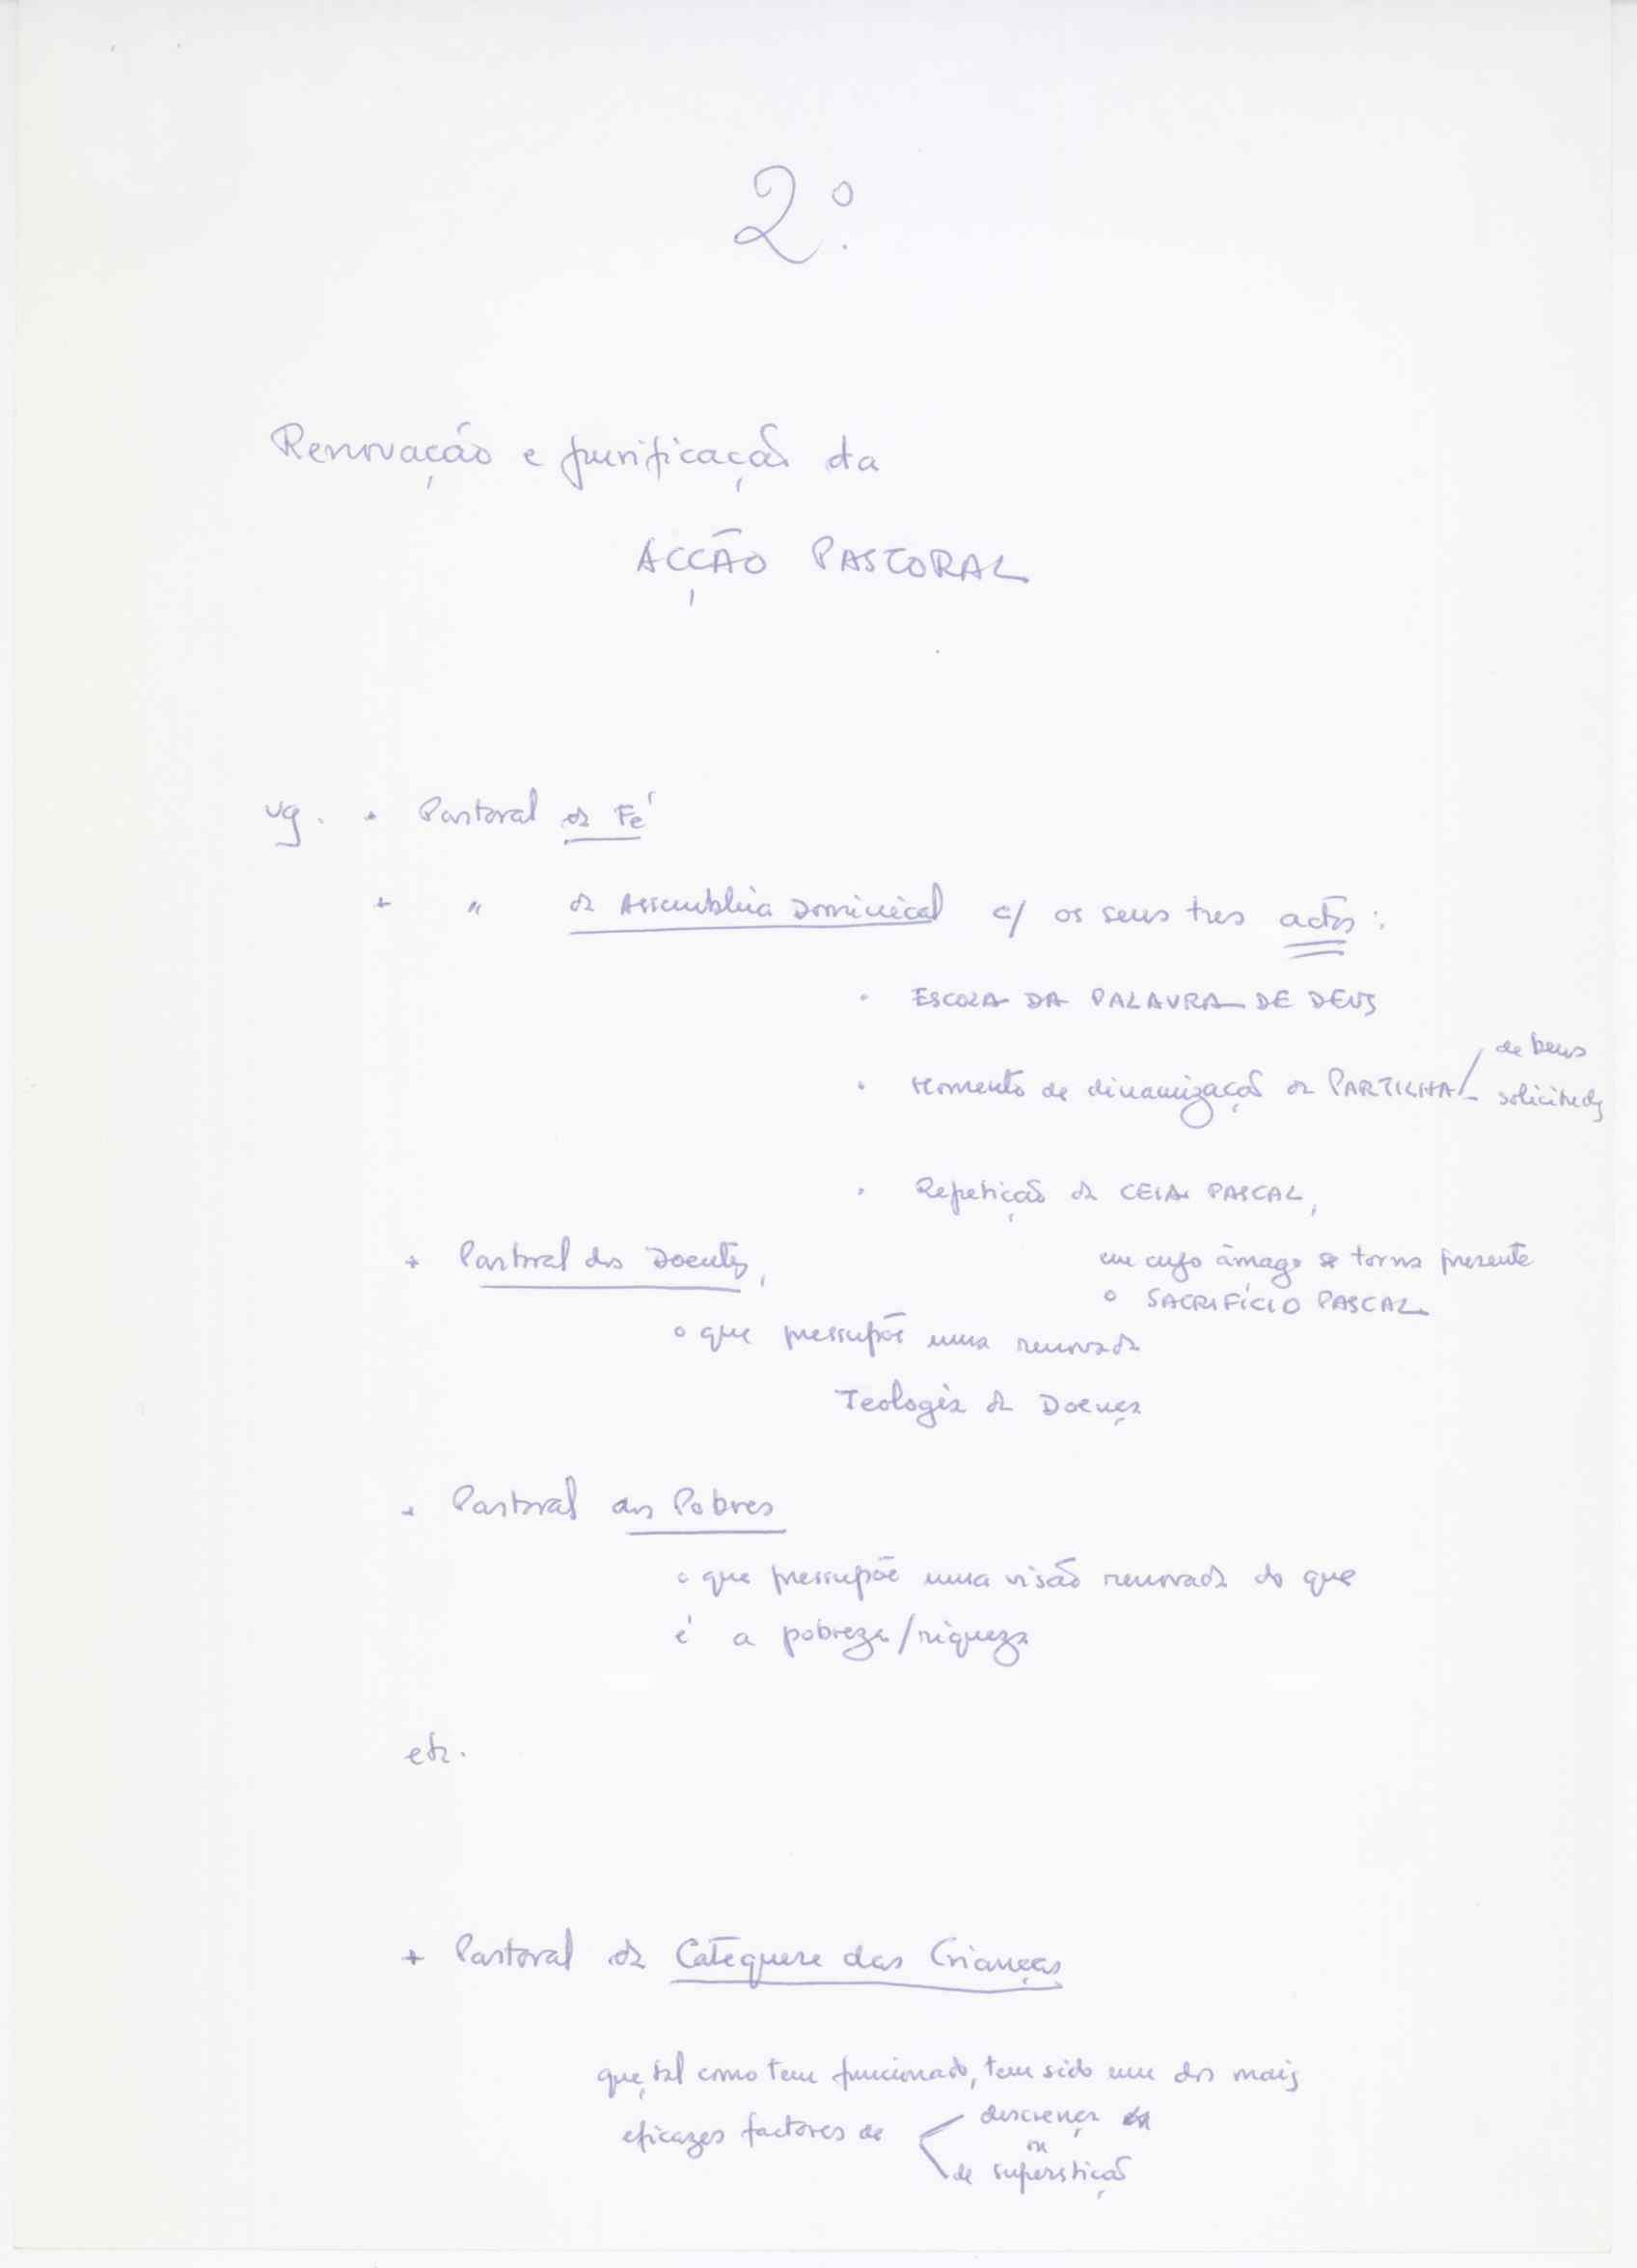 2.º
Renovação e purificação da
ACÇÃO PASTORAL
vg. + Pastoral da Fé
+ " da Assembleia Dominical c/ os seus tres actos:
· ESCOLA DA PALAVRA DE DEUS
· Momento de dinamização da PARTILHA / de bens
solicitudes
· Repetição da CEIA PASCAL,
em cujo âmago se torna presente
o SACRIFÍCIO PASCAL
+ Pastoral dos Doentes,
o que pressupõe uma renovada
Teologia da Doença
+ Pastoral dos Pobres
o que pressupõe uma visão renovada do que
é a pobreza/riqueza
etc.
+ Pastoral da Catequese das Crianças
que, tal como tem funcionado, tem sido um dos mais
eficazes factores de < descrença
ou
de superstição